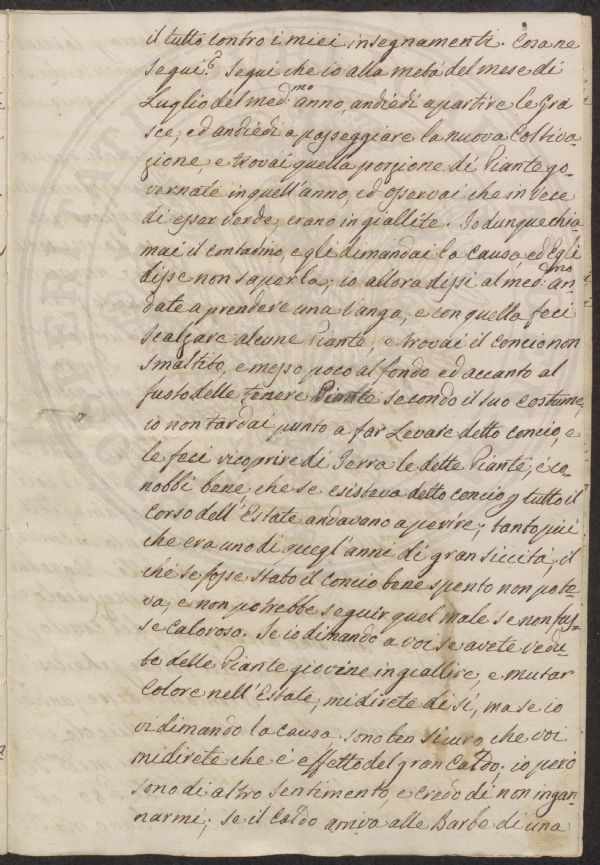 il tutto contro i miei insegnamenti. Cosa ne
seguì? Seguì che io alla metà del mese di
Luglio del med:mo anno, andiedi a partire le Gra
sce, ed andiedi a passeggiare la nuova Coltiva
zione, e trovai quella porzione di Piante go-
vernate in quell'anno, ed osservai che in vece
di esser verde, erano ingiallite. Io dunque chia-
mai il contadino, e gli dimandai la causa, ed Egli
disse non saperla; io allora dissi al med:mo an
date a prendere una Vanga, e con quella feci
scalzare alcune Piante, e trovai il concio non
smaltito, e messo poco al fondo ed accanto al
fusto delle tenere Piante secondo il suo costume,
io non tardai punto a far Levare detto concio, e
le feci ricoprire di Terra le dette Piante, e co-
nobbi bene, che se esisteva detto concio p tutto il
Corso dell'Estate andavano a perire; tanto più
che era uno di quegl'anni di gran siccità, il
chè se fosse stato il concio bene spento non pote-
va, e non potrebbe seguir quel male se non fus-
se Caloroso. Se io dimando a voi se avete vedu-
te delle Piante giovine ingiallire, e mutar
Colore nell'Estate, mi direte di sì, ma se io
vi dimando la causa sono ben sicuro che voi
mi direte che è effetto del gran Caldo; io però
sono di altro sentimento, e credo di non ingan-
narmi; se il Caldo arriva alle Barbe di una